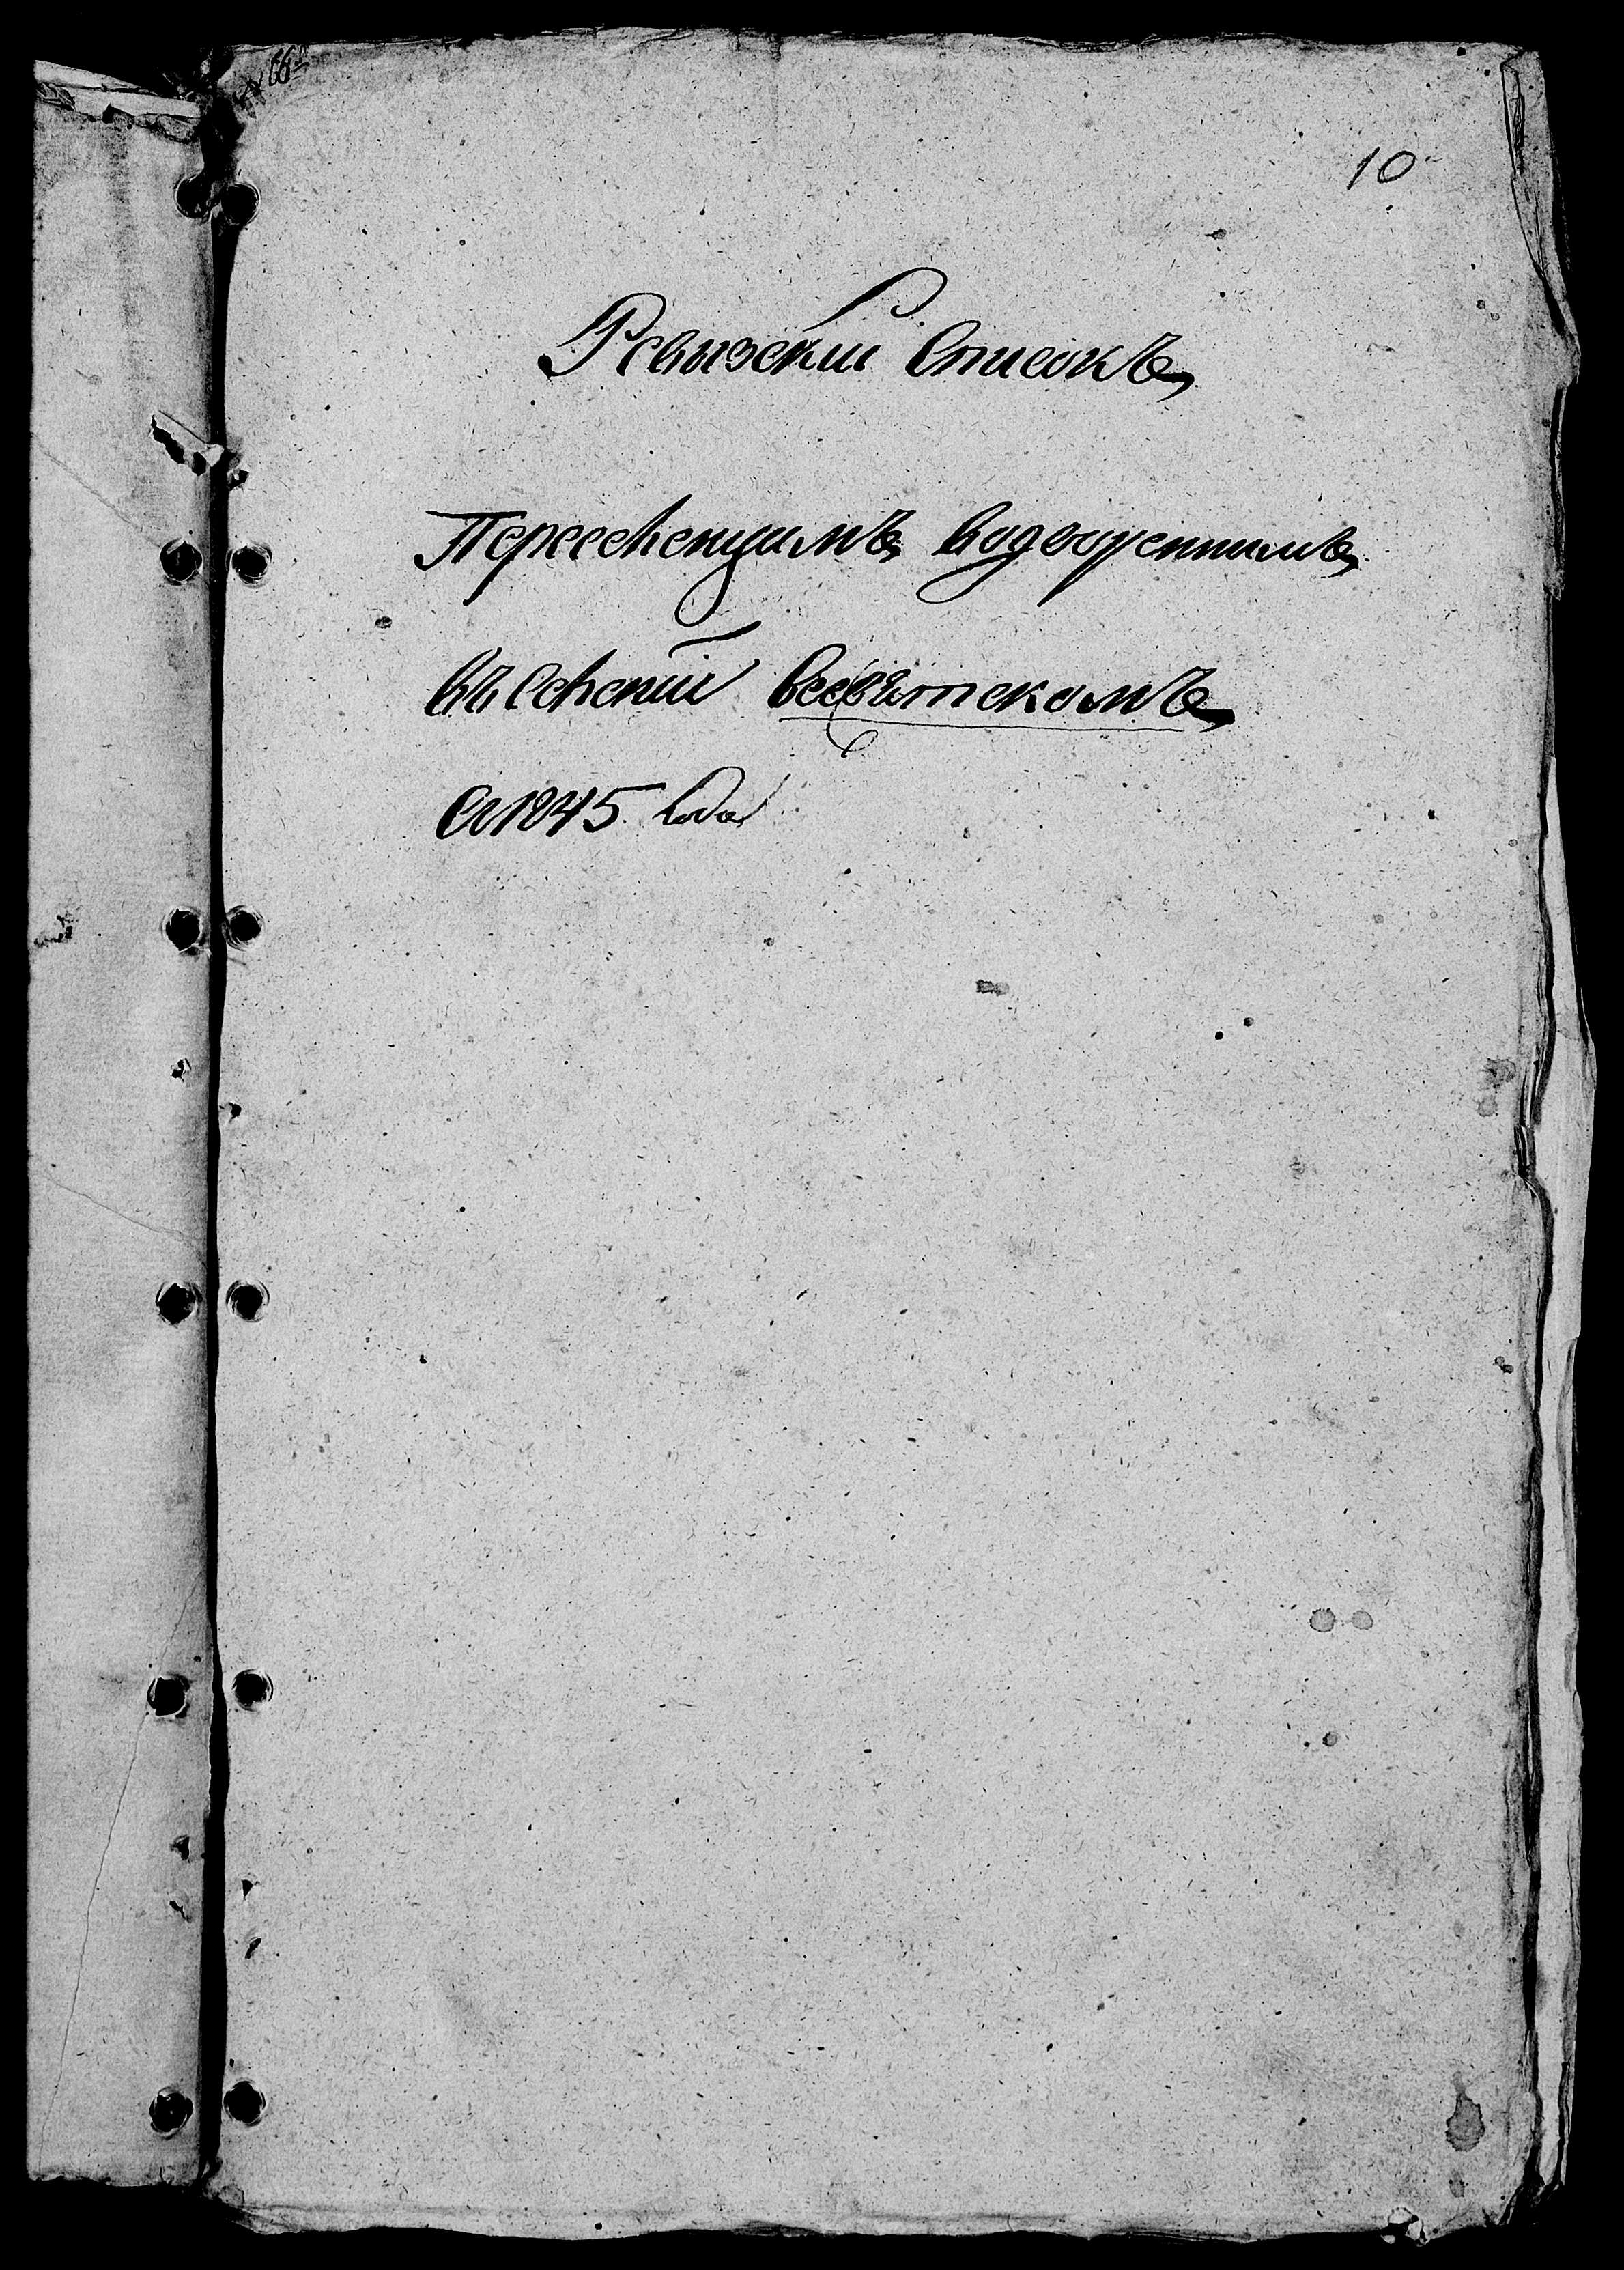 10
Ревызскии Списокъ
Переселенцамъ водвореннимъ
въ Селеніи Всесвятскомъ
съ 1845 Года